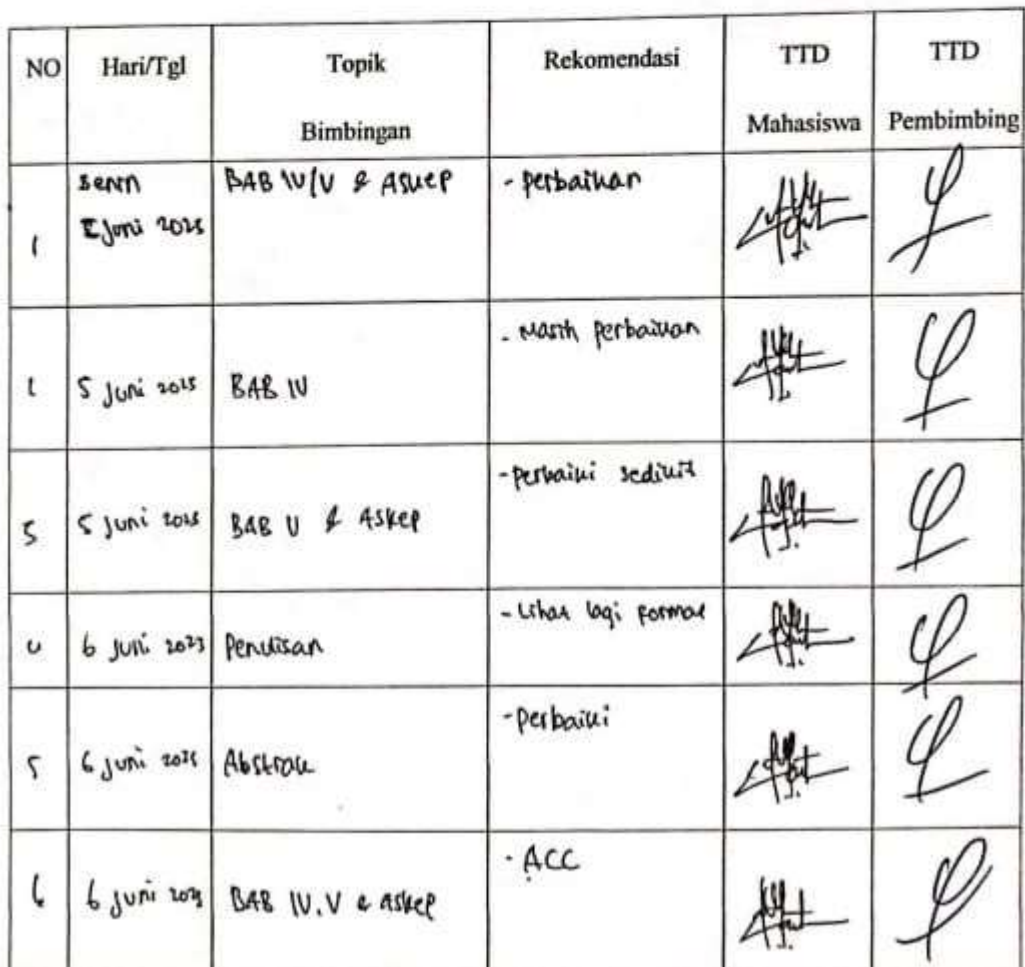 NO Hari/Tgl Topik Bimbingan Rekomendasi TTD Mahasiswa TTD Pembimbing
1 Senin Juni 2023 BAB IV/V & Askep - perbaikan
5 Juni 2023 BAB IV - Masih perbaikan
5 Juni 2023 BAB V & Askep - perbaiki sedikit
6 Juni 2023 Penulisan - Lihat lagi format
5 6 Juni 2023 Abstrak - perbaiki
6 6 Juni 2023 BAB IV.V & askep - ACC